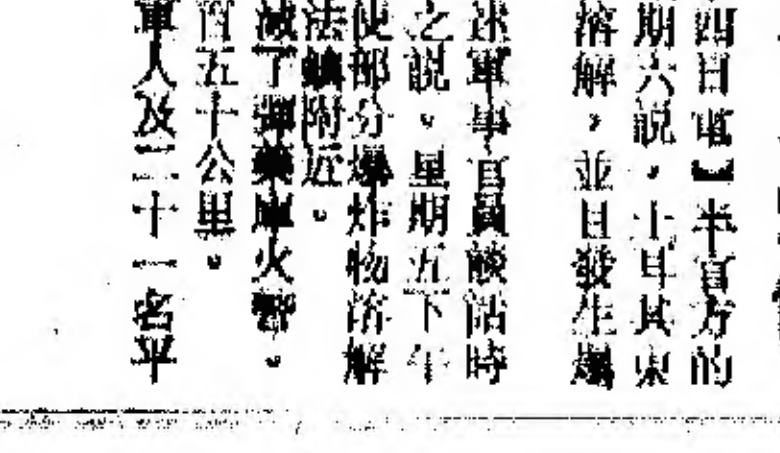 四日電】半官方的
期六說，土耳其東
溶解，並且發生爆
述軍事官員談話時
之說。星期五下午
使部分爆炸物溶解
法鎮附近。
滅了彈藥庫火警。
百五十公里。
軍人及二十一名平